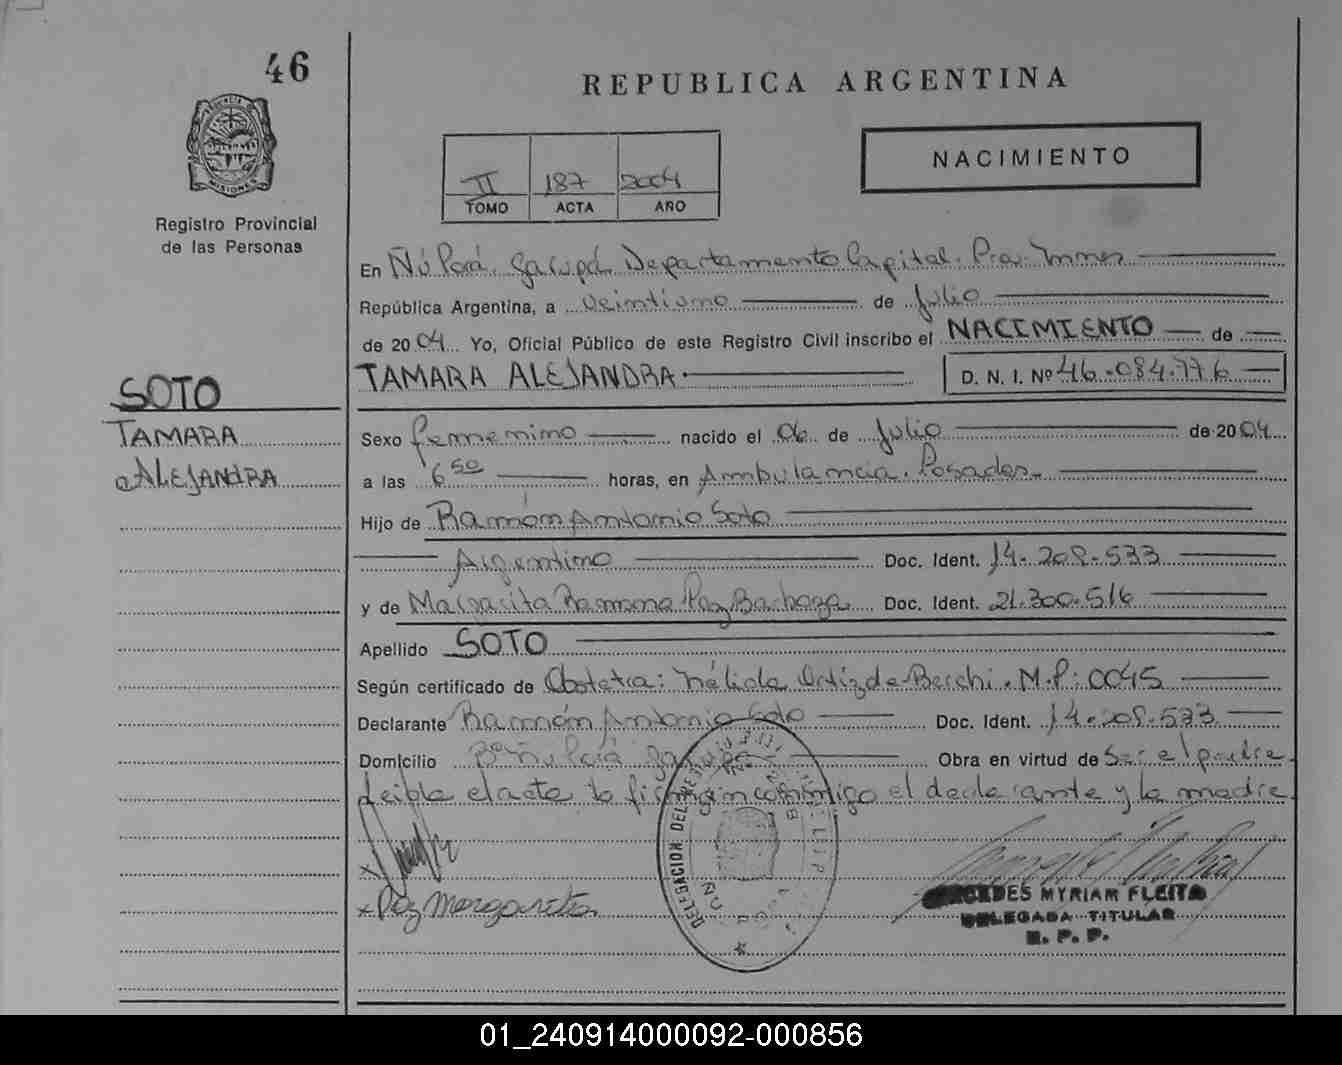 46
REPUBLICA ARGENTINA
PROVINCIA DE
MISIONES
Registro Provincial
de las Personas
II 187 2004
TOMO ACTA AÑO
NACIMIENTO
En Ñú Porá. Garupá. Departamento Capital. Pro.
República Argentina, a veintiuno de Julio
de 2004 Yo, Oficial Público de este Registro Civil inscribo el NACIMIENTO de
TAMARA ALEJANDRA. D. N. I. Nº 46.084.776
SOTO
TAMARA
ALEJANDRA
Sexo femenino nacido el 06 de Julio de 2004
a las 6 50 horas, en Ambulancia. Posadas
Hijo de Ramón Antonio Soto
Argentino Doc. Ident. 14.208.533
y de Margarita Ramona Paz Barboza Doc. Ident. 21.300.516
Apellido SOTO
Según certificado de Obstetra: Nélida Ortiz de Berchi. M.P: 0045
Declarante Ramón Antonio Soto Doc. Ident. 14.208.533
Domicilio Bº Ñu Porá Garupá Obra en virtud de Ser el padre
leida el acta la firman conmigo el declarante y la madre
x
x Paz Margarita
DELEGACION DEL
MYRIAM FLEITA
DELEGADA TITULAR
R. P. P.
01_240914000092-000856